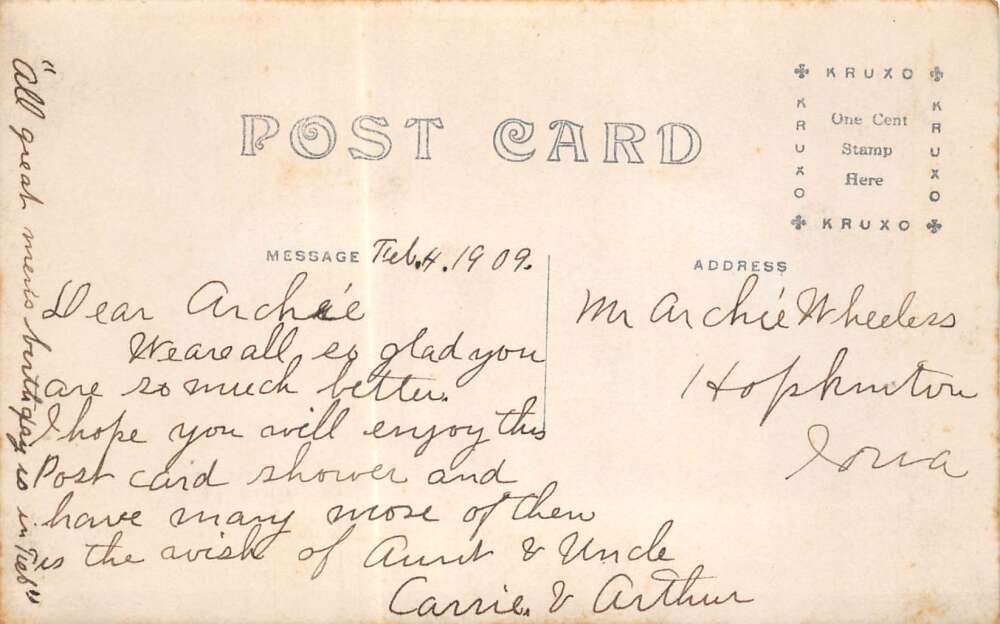 POST CARD
KRUXO
KRUXO
One Cent
Stamp
Here
KRUXO
KRUXO
MESSAGE Feb. 4. 1909.
Dear Archie
We are all so glad you
are so much better.
I hope you will enjoy this
Post card shower and
have many more of them
is the wish of Aunt & Uncle
Carrie. & Arthur
ADDRESS
Mr Archie Wheeless
Hopkinton
Iowa
"All great mens birthday is in Feb"